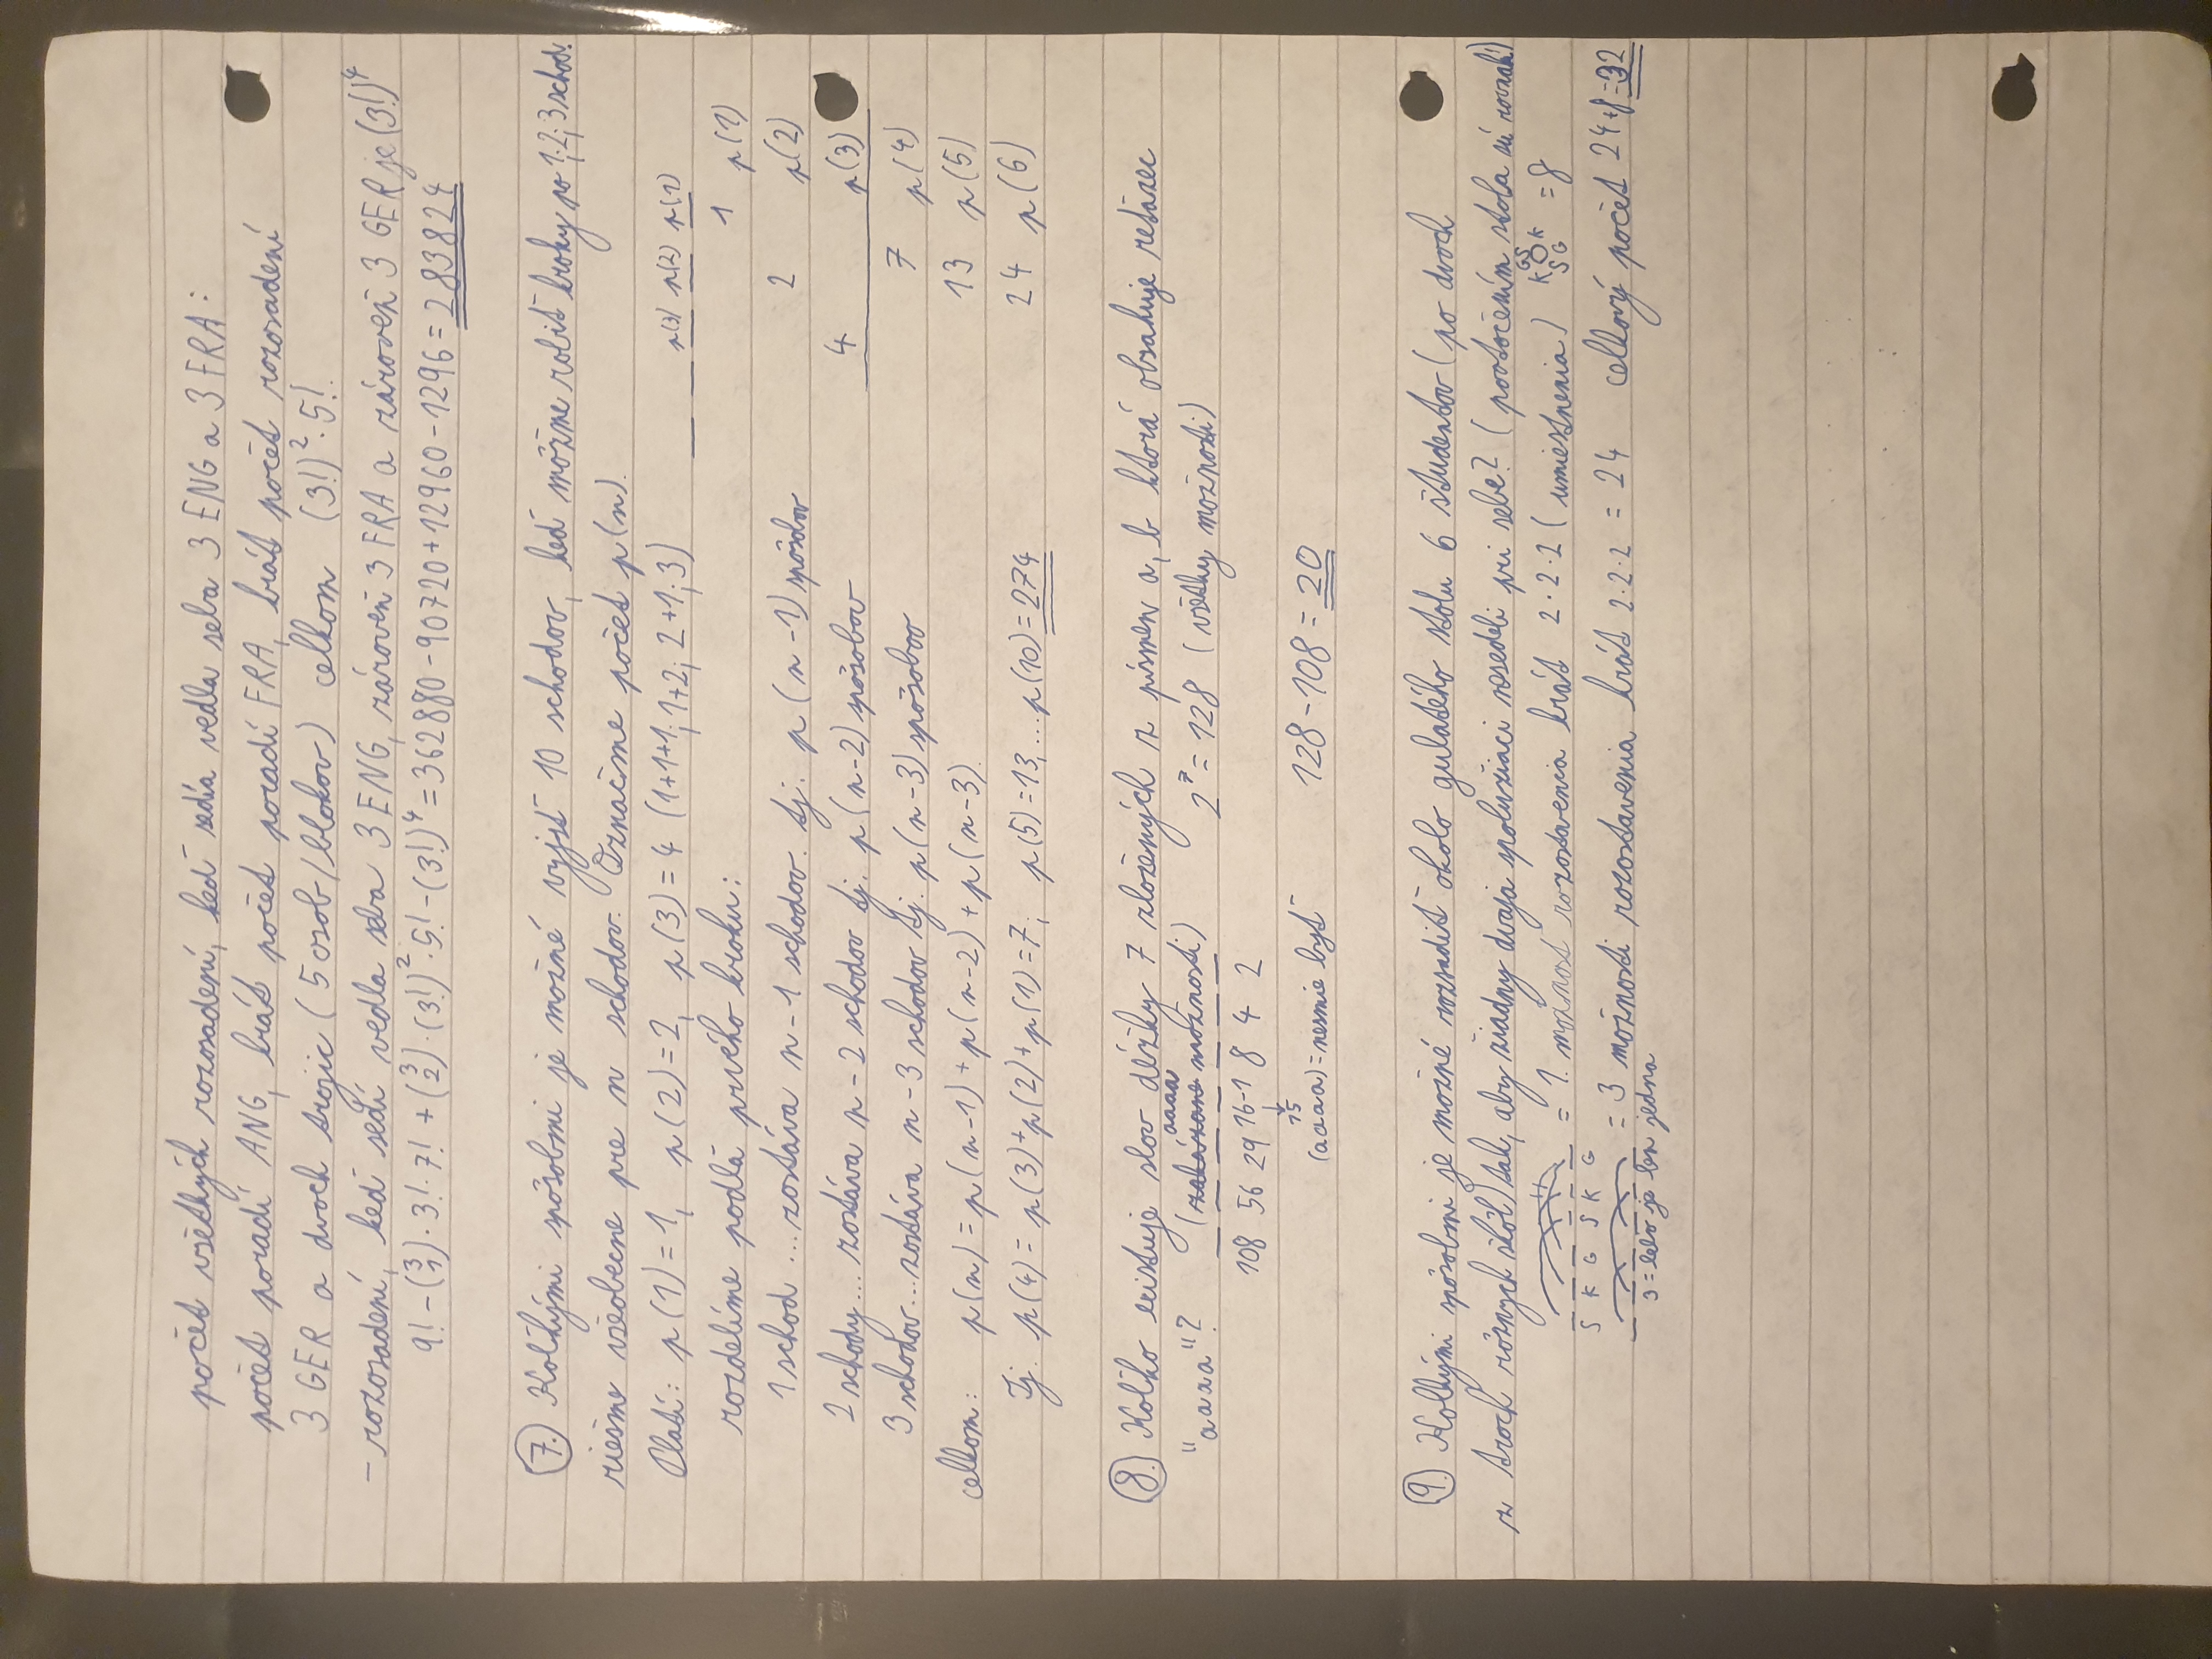 počet všetkých rozosadení, keď sedia vedla seba 3 ENG a 3 FRA:
počet poradí ANG, krát počet poradí FRA, krát počet rozosadení
3 GER a dvoch trojic (5 osob/blokov) celkom (3!)²·5!.
- rozosadení, keď sedí vedla seba 3 ENG, zároveň 3 FRA a zároveň 3 GER je (3!)⁴
9! - (3 1)·3!·7! + (3 2)·(3!)²·5! - (3!)⁴ = 362880 - 90720 + 12960 - 1296 = 283824
7.) Koľkými spôsobmi je možné vyjsť 10 schodov, keď môžme robiť kroky po 1; 2; 3 schod.
riešme všeobecne pre n schodov. Označme počet p(n).
Platí: p(1)=1, p(2)=2, p(3)=4 (1+1+1; 1+2; 2+1; 3) p(3) p(2) p(1)
rozdelíme podlá prvého kroku: 1 p(1)
1 schod ... zostáva n-1 schodov. tj. p(n-1) spôsobov 2 p(2)
2 schody... zostáva n-2 schodov tj. p(n-2) spôsobov 4 p(3)
3 schodov... zostáva n-3 schodov tj. p(n-3) spôsobov 7 p(4)
celkom: p(n) = p(n-1) + p(n-2) + p(n-3). 13 p(5)
Tj. p(4) = p(3)+p(2)+p(1)=7; p(5)=13, ...p(10)=274 24 p(6)
8.) Koľko existuje slov dĺžky 7 zložených z písmen a, b ktorá obsahuje reťazec
"aaaa"? (aaaa možnosti) 2⁷ = 128 (všetky možnosti)
108 56 29 16-1 8 4 2
↓
15
(aaaa) = nesmie byť 128 - 108 = 20
9.) Kolkými spôsobmi je možné rozsadiť okolo gulatého stolu 6 študentov (po dvoch
z troch rôznych škôl) tak, aby žiadny dvaja spolužiaci nesedeli pri sebe? (pootočením stola sú rovnaké)
= 1. možnost rozostavenia krát 2·2·2 (umiestnenia) GS K O K SG = 8
S K G S K G
= 3 možnosti rozostavenia krát 2·2·2 = 24 celkový počet 24+8=32
3 = lebo je len jedna